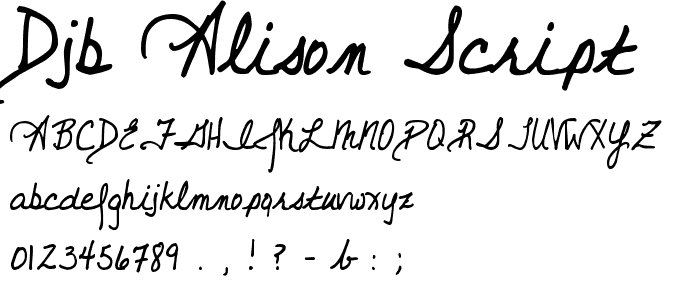 Djb Alison Script
ABCDEFGHIJKLMNOPQRSTUVWXYZ
abcdefghijklmnopqrstuvwxyz
0123456789 . , ! ? - b : ;